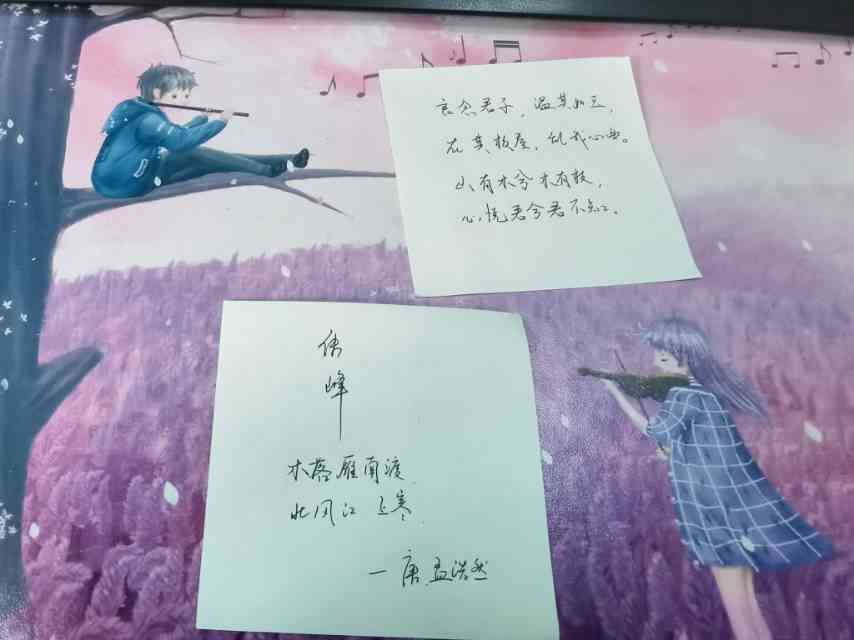 言念君子，温其如玉，
在其板屋，乱我心曲。
山有木兮木有枝，
心悦君兮君不知。
峰
木落雁南渡
北风江上寒
—唐.孟浩然